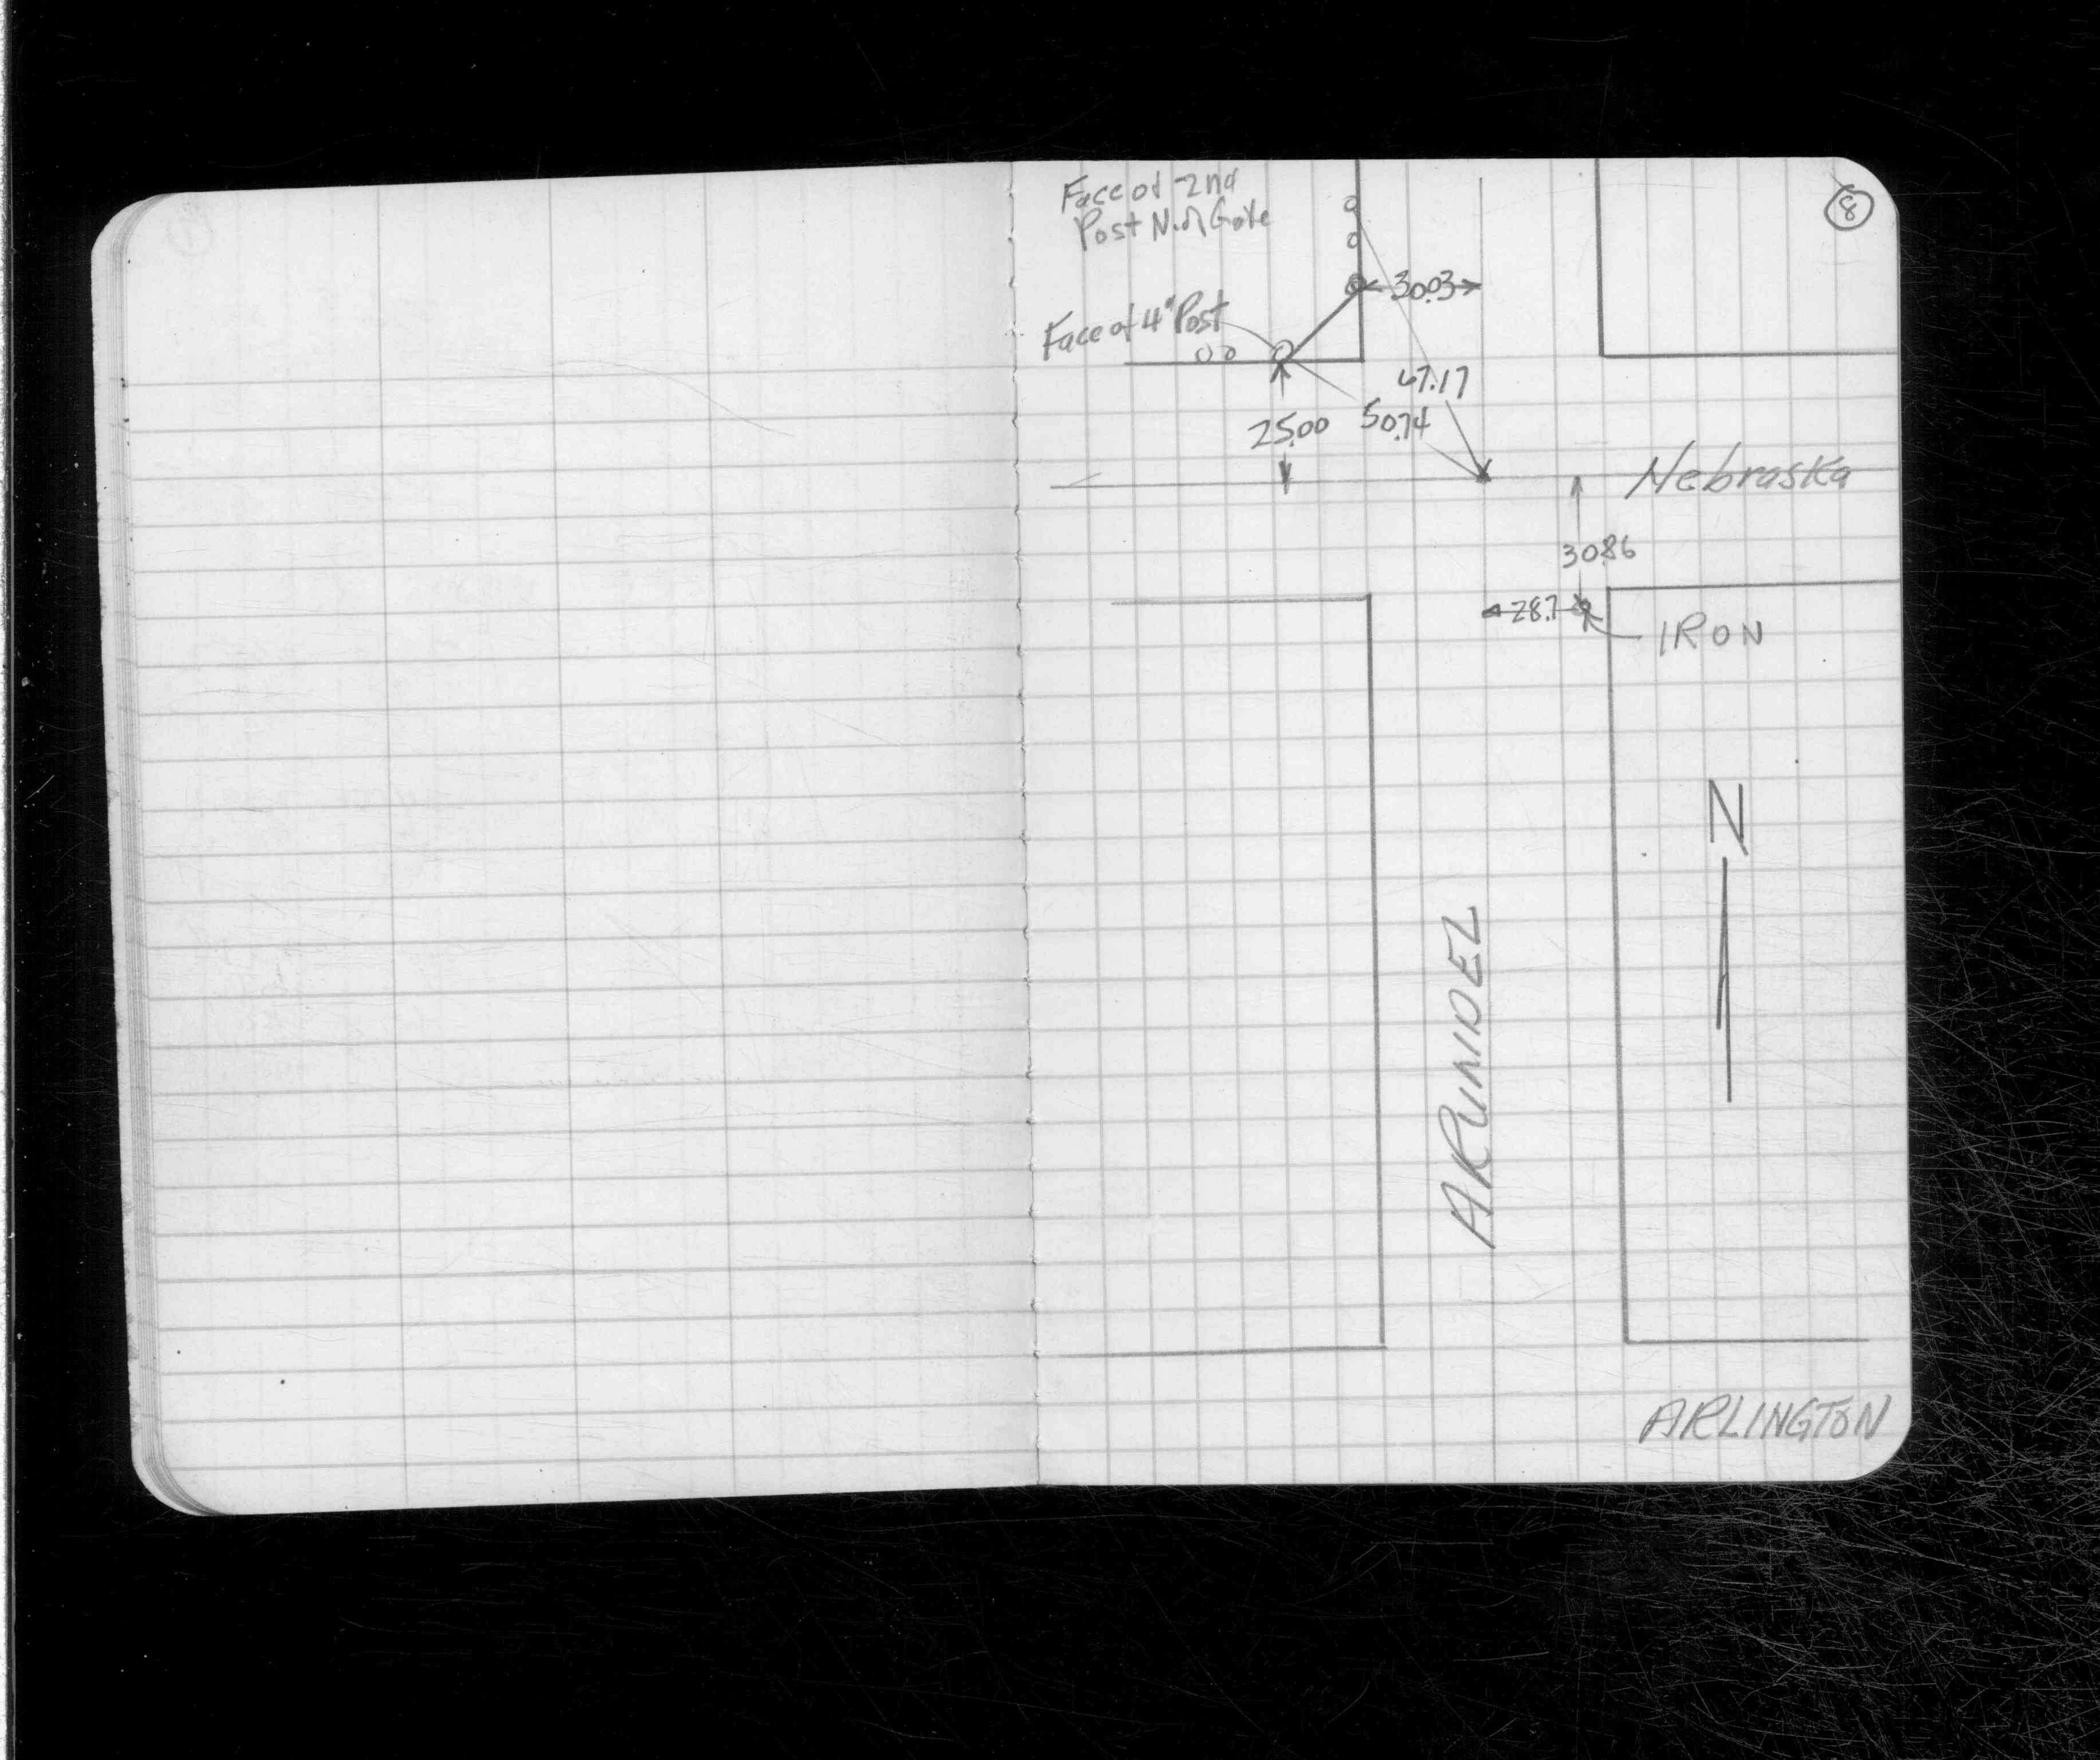 Face of 2nd
Post N. of Gate
8
30.03
Face of 4" Post
67.17
25.00
50.74
Nebraska
30.86
28.7
IRON
N
ARUNDEL
ARLINGTON